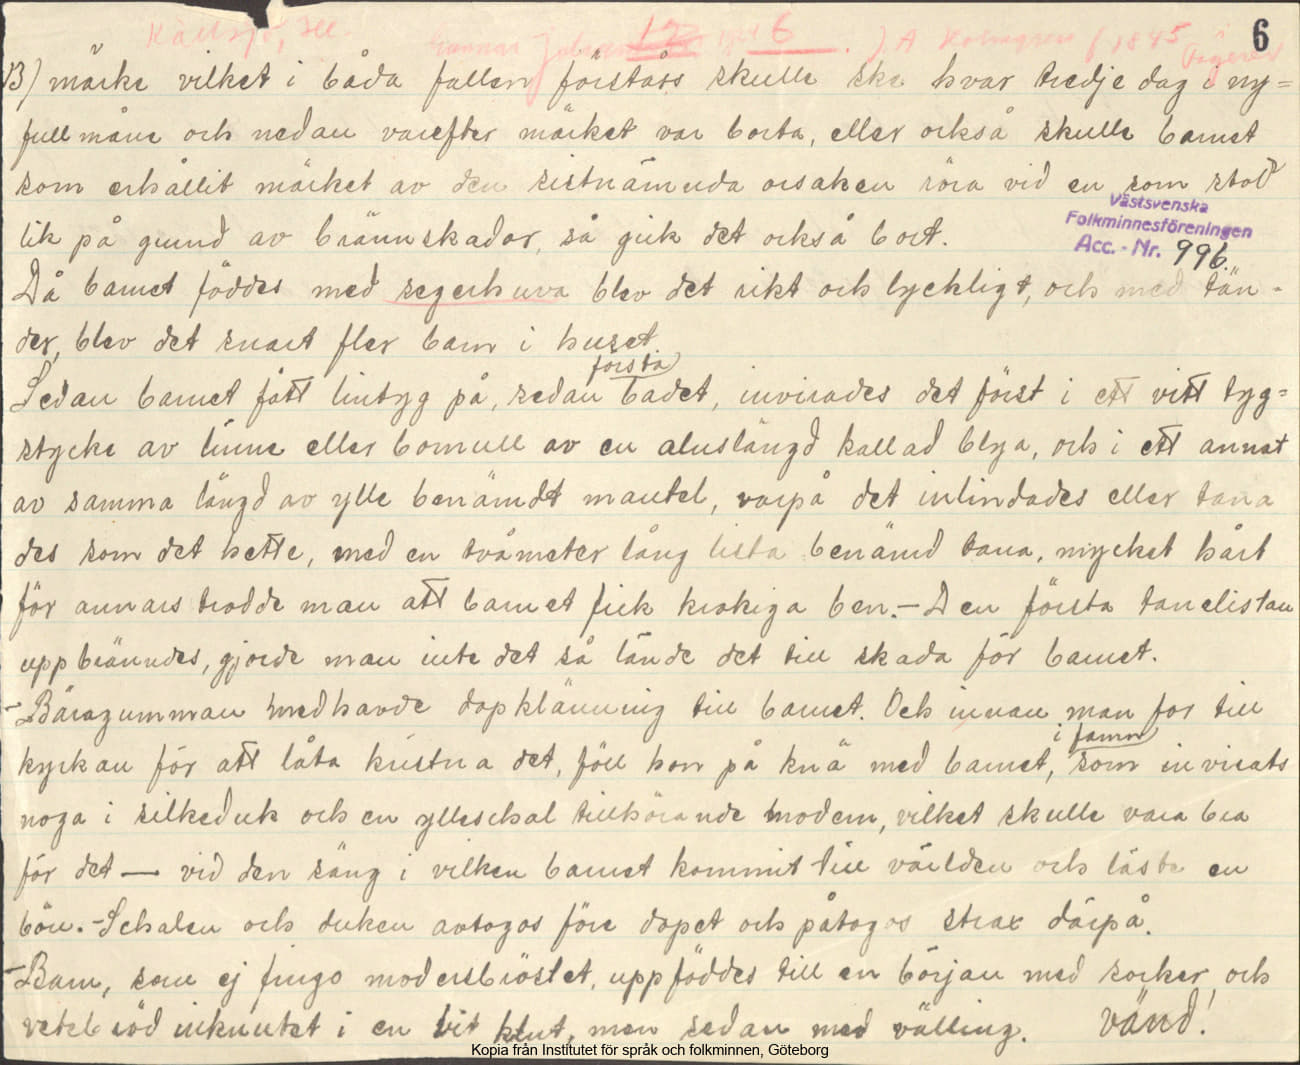 6
B) märke vilket i båda fallen förstås skulle ske hvar tredje dag i ny=
fullmåne och nedan varefter märket var borta, eller också skulle barnet
som erhållit märket av den sistnämnda orsaken röra vid en som stod
lik på grund av brännskador, så gick det också bort.
Västsvenska
Folkminnesföreningen
Acc.-Nr. 996.
Då barnet föddes med segerhuva blev det rikt och lyckligt, och med tän-
der, blev det snart fler barn i huset.
första
Sedan barnet fått lintyg på, sedan badet, invirades det först i ett vitt tyg=
stycke av linne eller bomull av en alnslängd kallad blya, och i ett annat
av samma längd av ylle benämdt mantel, varpå det inlindades eller tana
des som det hette, med en tvåmeter lång lista benämd tana, mycket hårt
för annars trodde man att barnet fick krokiga ben.- Den första tanelistan
uppbrändes, gjorde man inte det så lände det till skada för barnet.
- Bäragumman medhavde dopklänning till barnet. Och innan man for till
i famn
kyrkan för att låta kristna det, föll hon på knä med barnet, som invirats
noga i silkeduk och en ylleschal tillhörande modern, vilket skulle vara bra
för det — vid den säng i vilken barnet kommit till världen och läste en
bön.- Schalen och duken avtogos före dopet och påtogos strax därpå.
- Barn, som ej fingo modersbröstet, uppföddes till en början med socker och
vetebröd inknutet i en vit klut, men sedan med välling. vänd!
Kopia från Institutet för språk och folkminnen, Göteborg